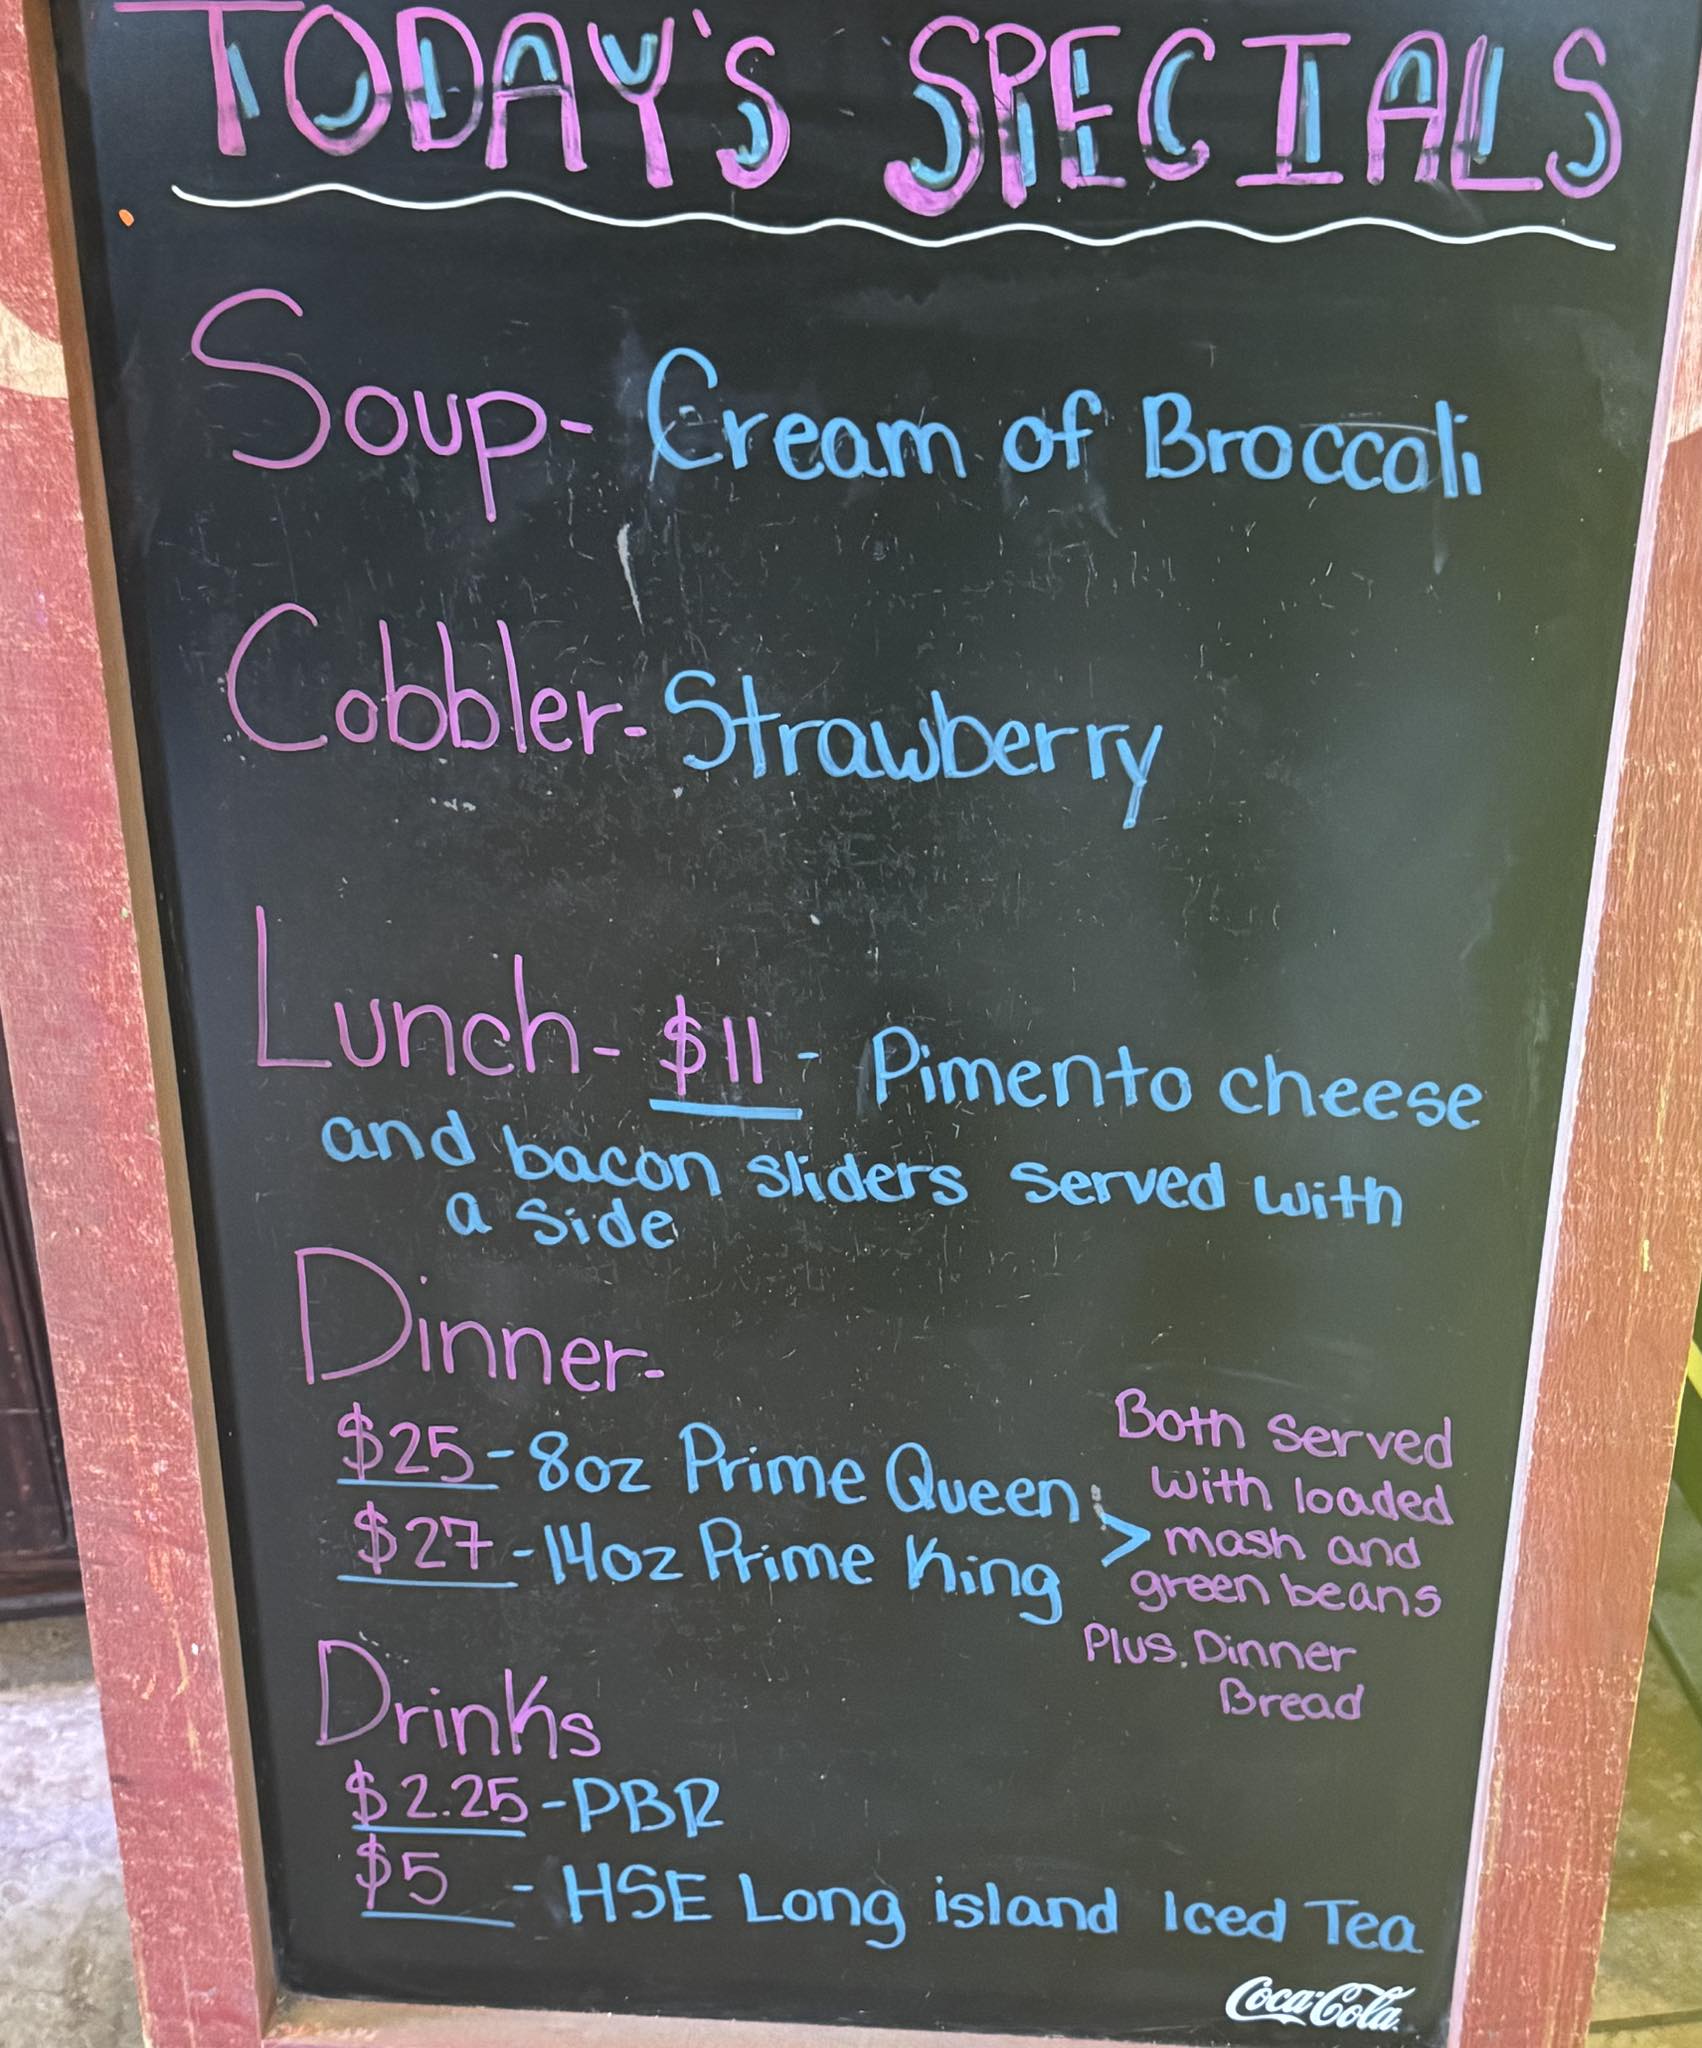 TODAY'S SPECIALS
Soup- Cream of Broccoli
Cobbler- Strawberry
Lunch- $11 - Pimento cheese
and bacon sliders served with
a side
Dinner-
$25-8oz Prime Queen
$27-14oz Prime King
>
Both served
with loaded
mash and
green beans
Plus Dinner
Bread
Drinks
$2.25-PBR
$5 - HSE Long island Iced Tea
Coca-Cola